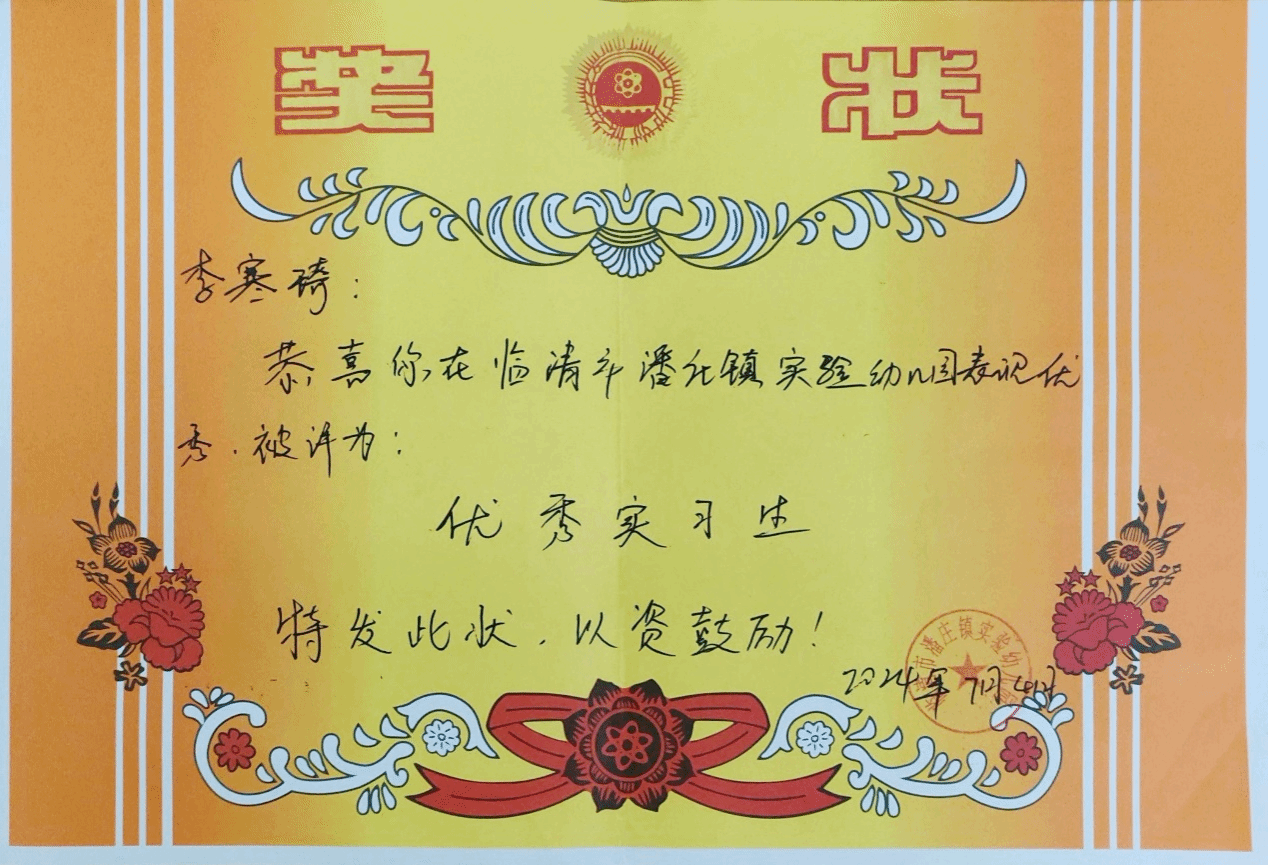 奖状
李寒琦：
恭喜你在临清市潘庄镇实验幼儿园表现优
秀.被评为：
优秀实习生
特发此状，以资鼓励！
市潘庄镇实验幼
2024年7月4日